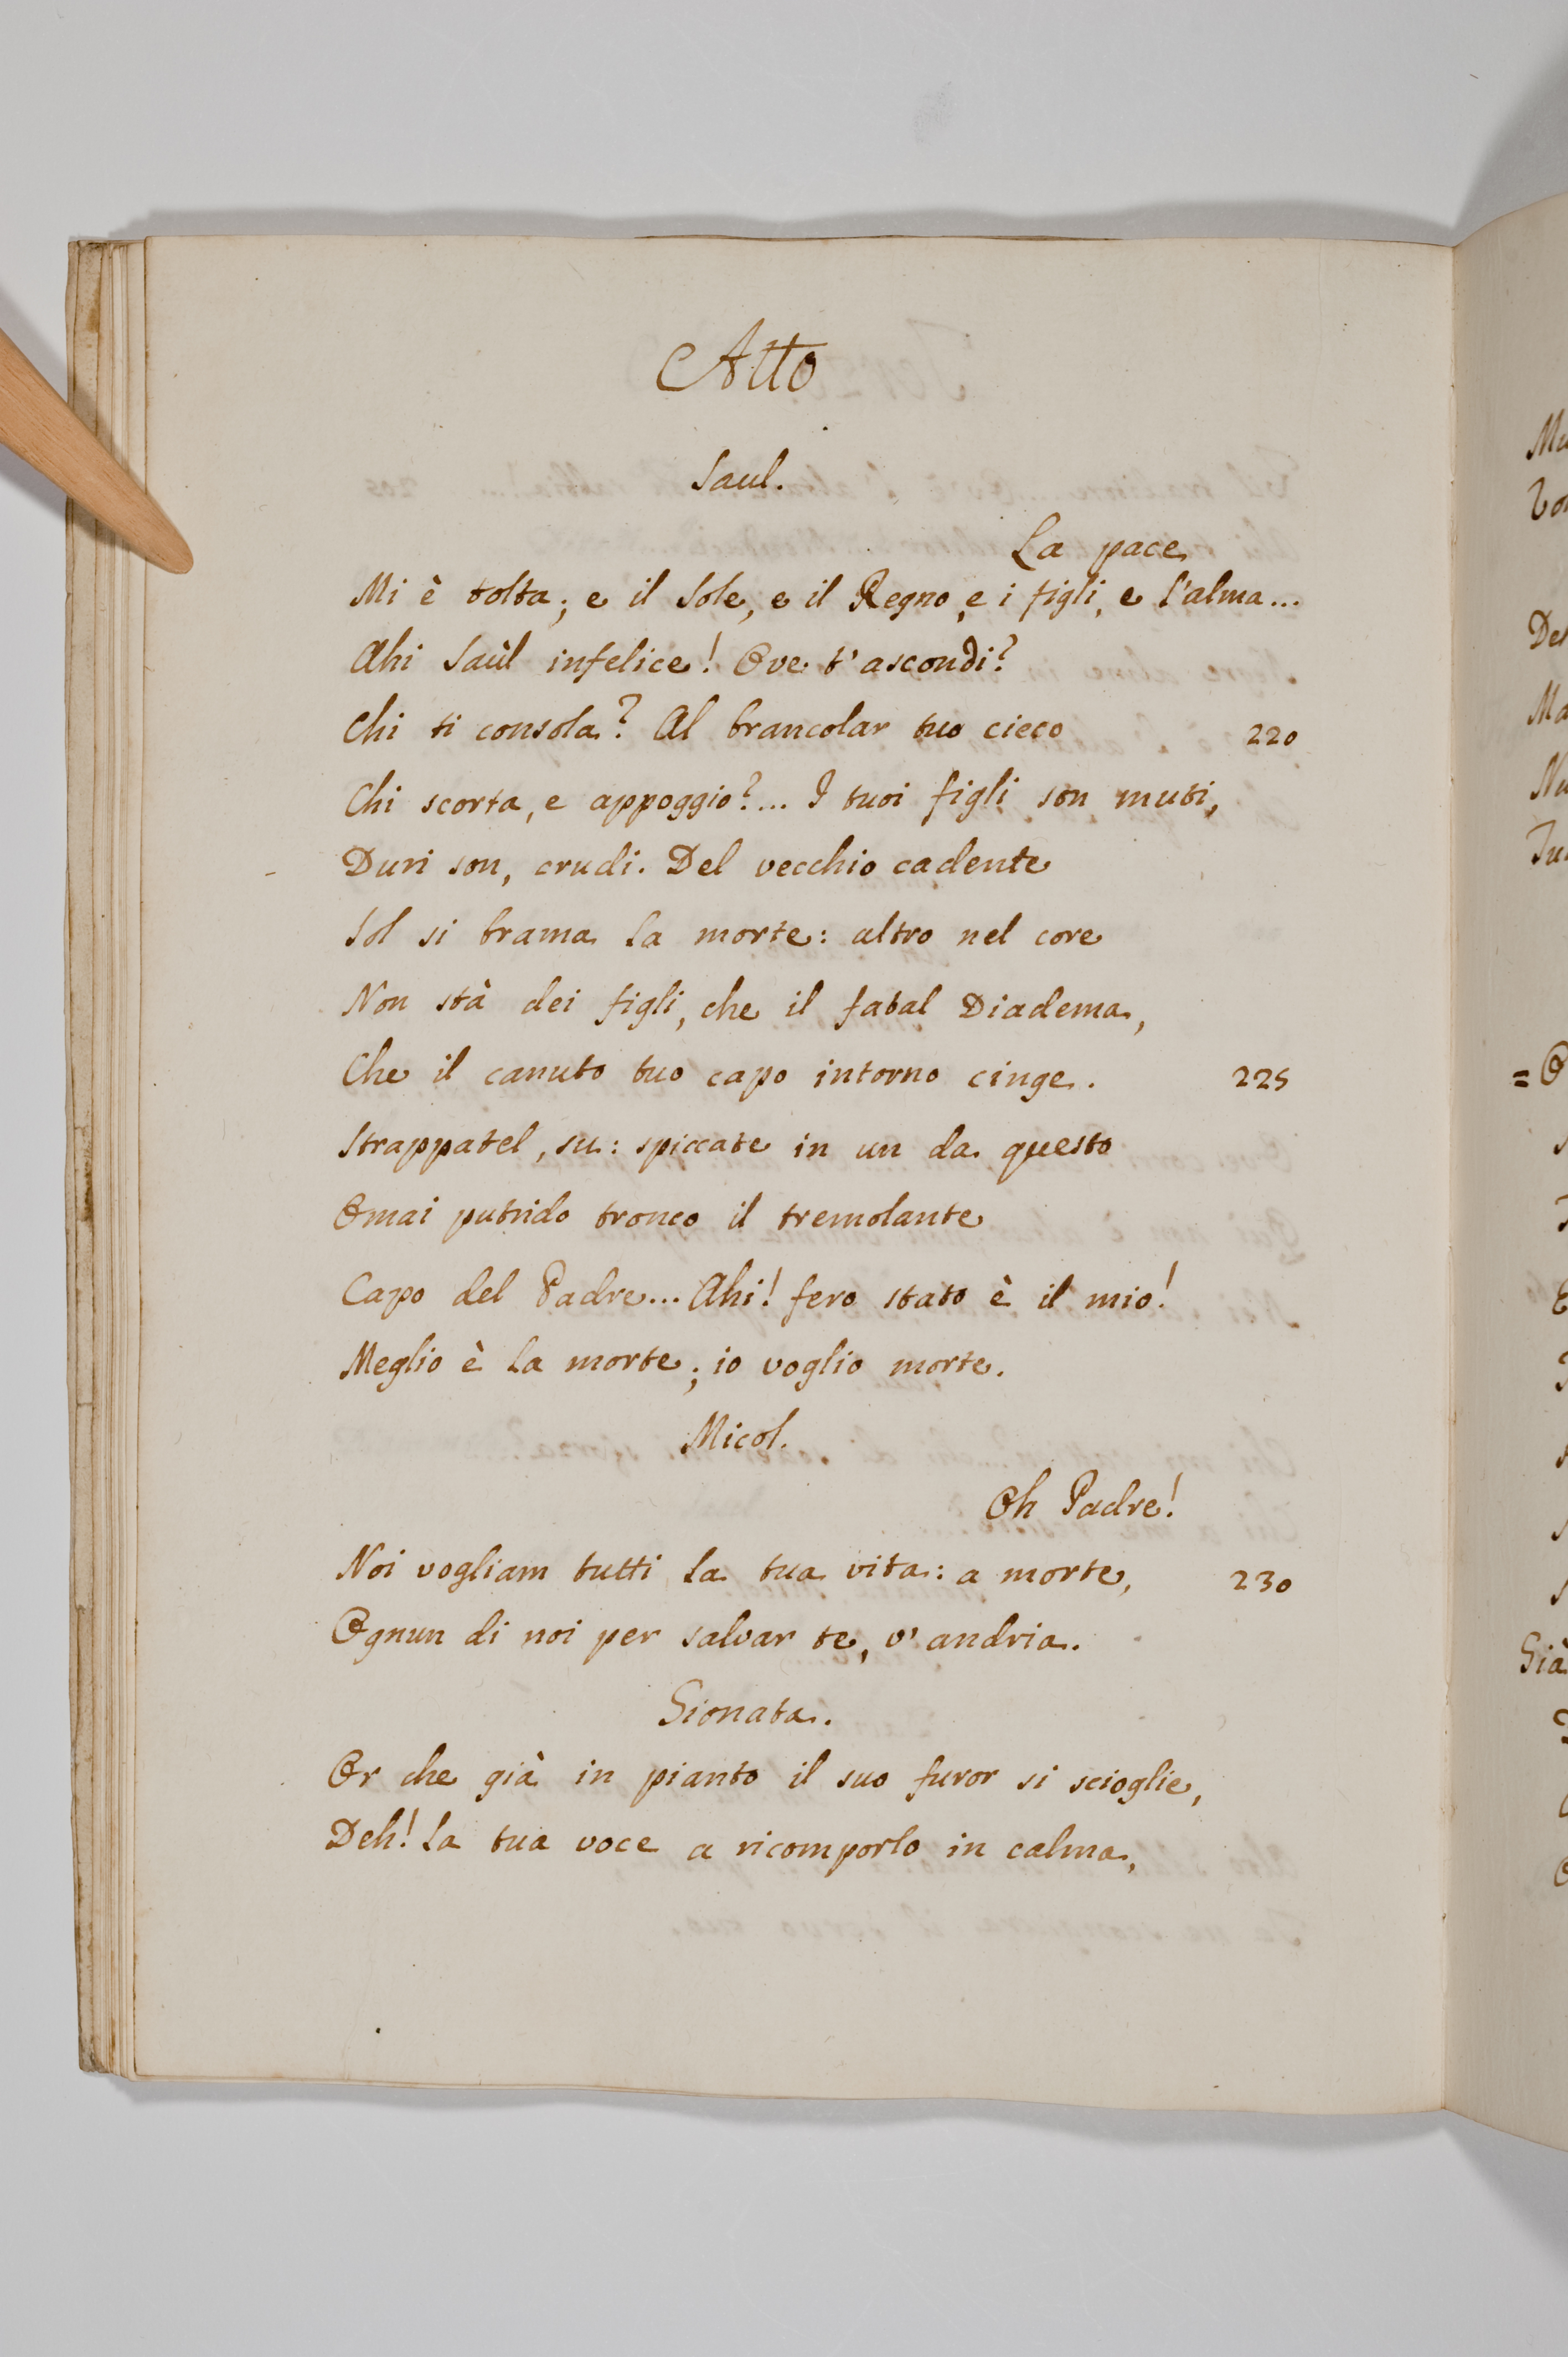 Atto
Saul.
La pace
Mi è tolta; e il Sole, e il Regno, e i figli, e l'alma...
Ahi Saùl infelice! Ove t'ascondi?
Chi ti consola? Al brancolar tuo cieco 220
Chi scorta, e appoggio?... I tuoi figli son muti,
Duri son, crudi. Del vecchio cadente
Sol si brama la morte: altro nel core
Non stà dei figli, che il fatal Diadema,
Che il canuto tuo capo intorno cinge. 225
Strappatel, su: spiccate in un da questo
Omai putrido tronco il tremolante
Capo del Padre... Ahi! fero stato è il mio!
Meglio è la morte; io voglio morte.
Micol.
Oh Padre!
Noi vogliam tutti la tua vita: a morte, 230
Ognun di noi per salvar te, v'andria.
Gionata.
Or che già in pianto il suo furor si scioglie,
Deh! la tua voce a ricomporlo in calma,